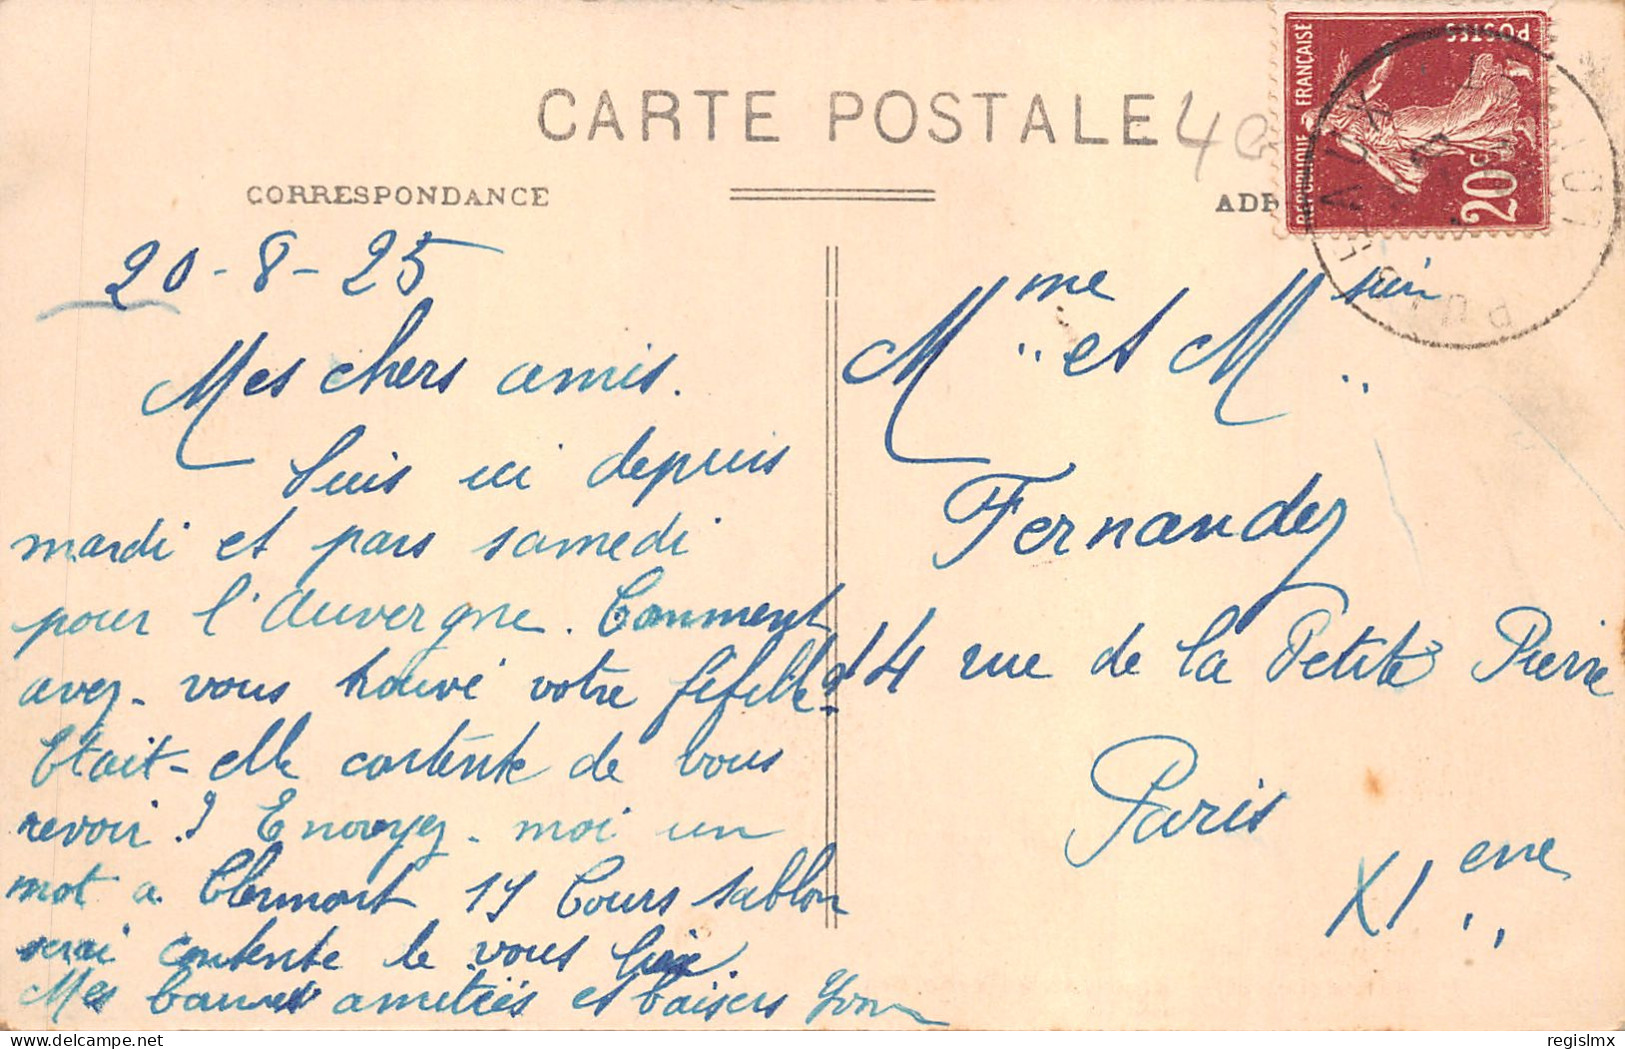 CARTE POSTALE
CORRESPONDANCE
20-8-25
Mes chers amis.
Suis ici depuis
mardi et pars samedi
pour l'Auvergne. Comment
avez-vous trouvé votre fifille?
Etait-elle contente de vous
revoir? Envoyez-moi un
mot a Clermont 19 Cours Sablon
serai contente de vous lire.
Mes bonnes amitiés et baisers Yvonne
REPUBLIQUE FRANÇAISE
POSTES
20c
Mme et M
Fernandez
14 rue de la Petite Pierre
Paris
XIeme
regislmx